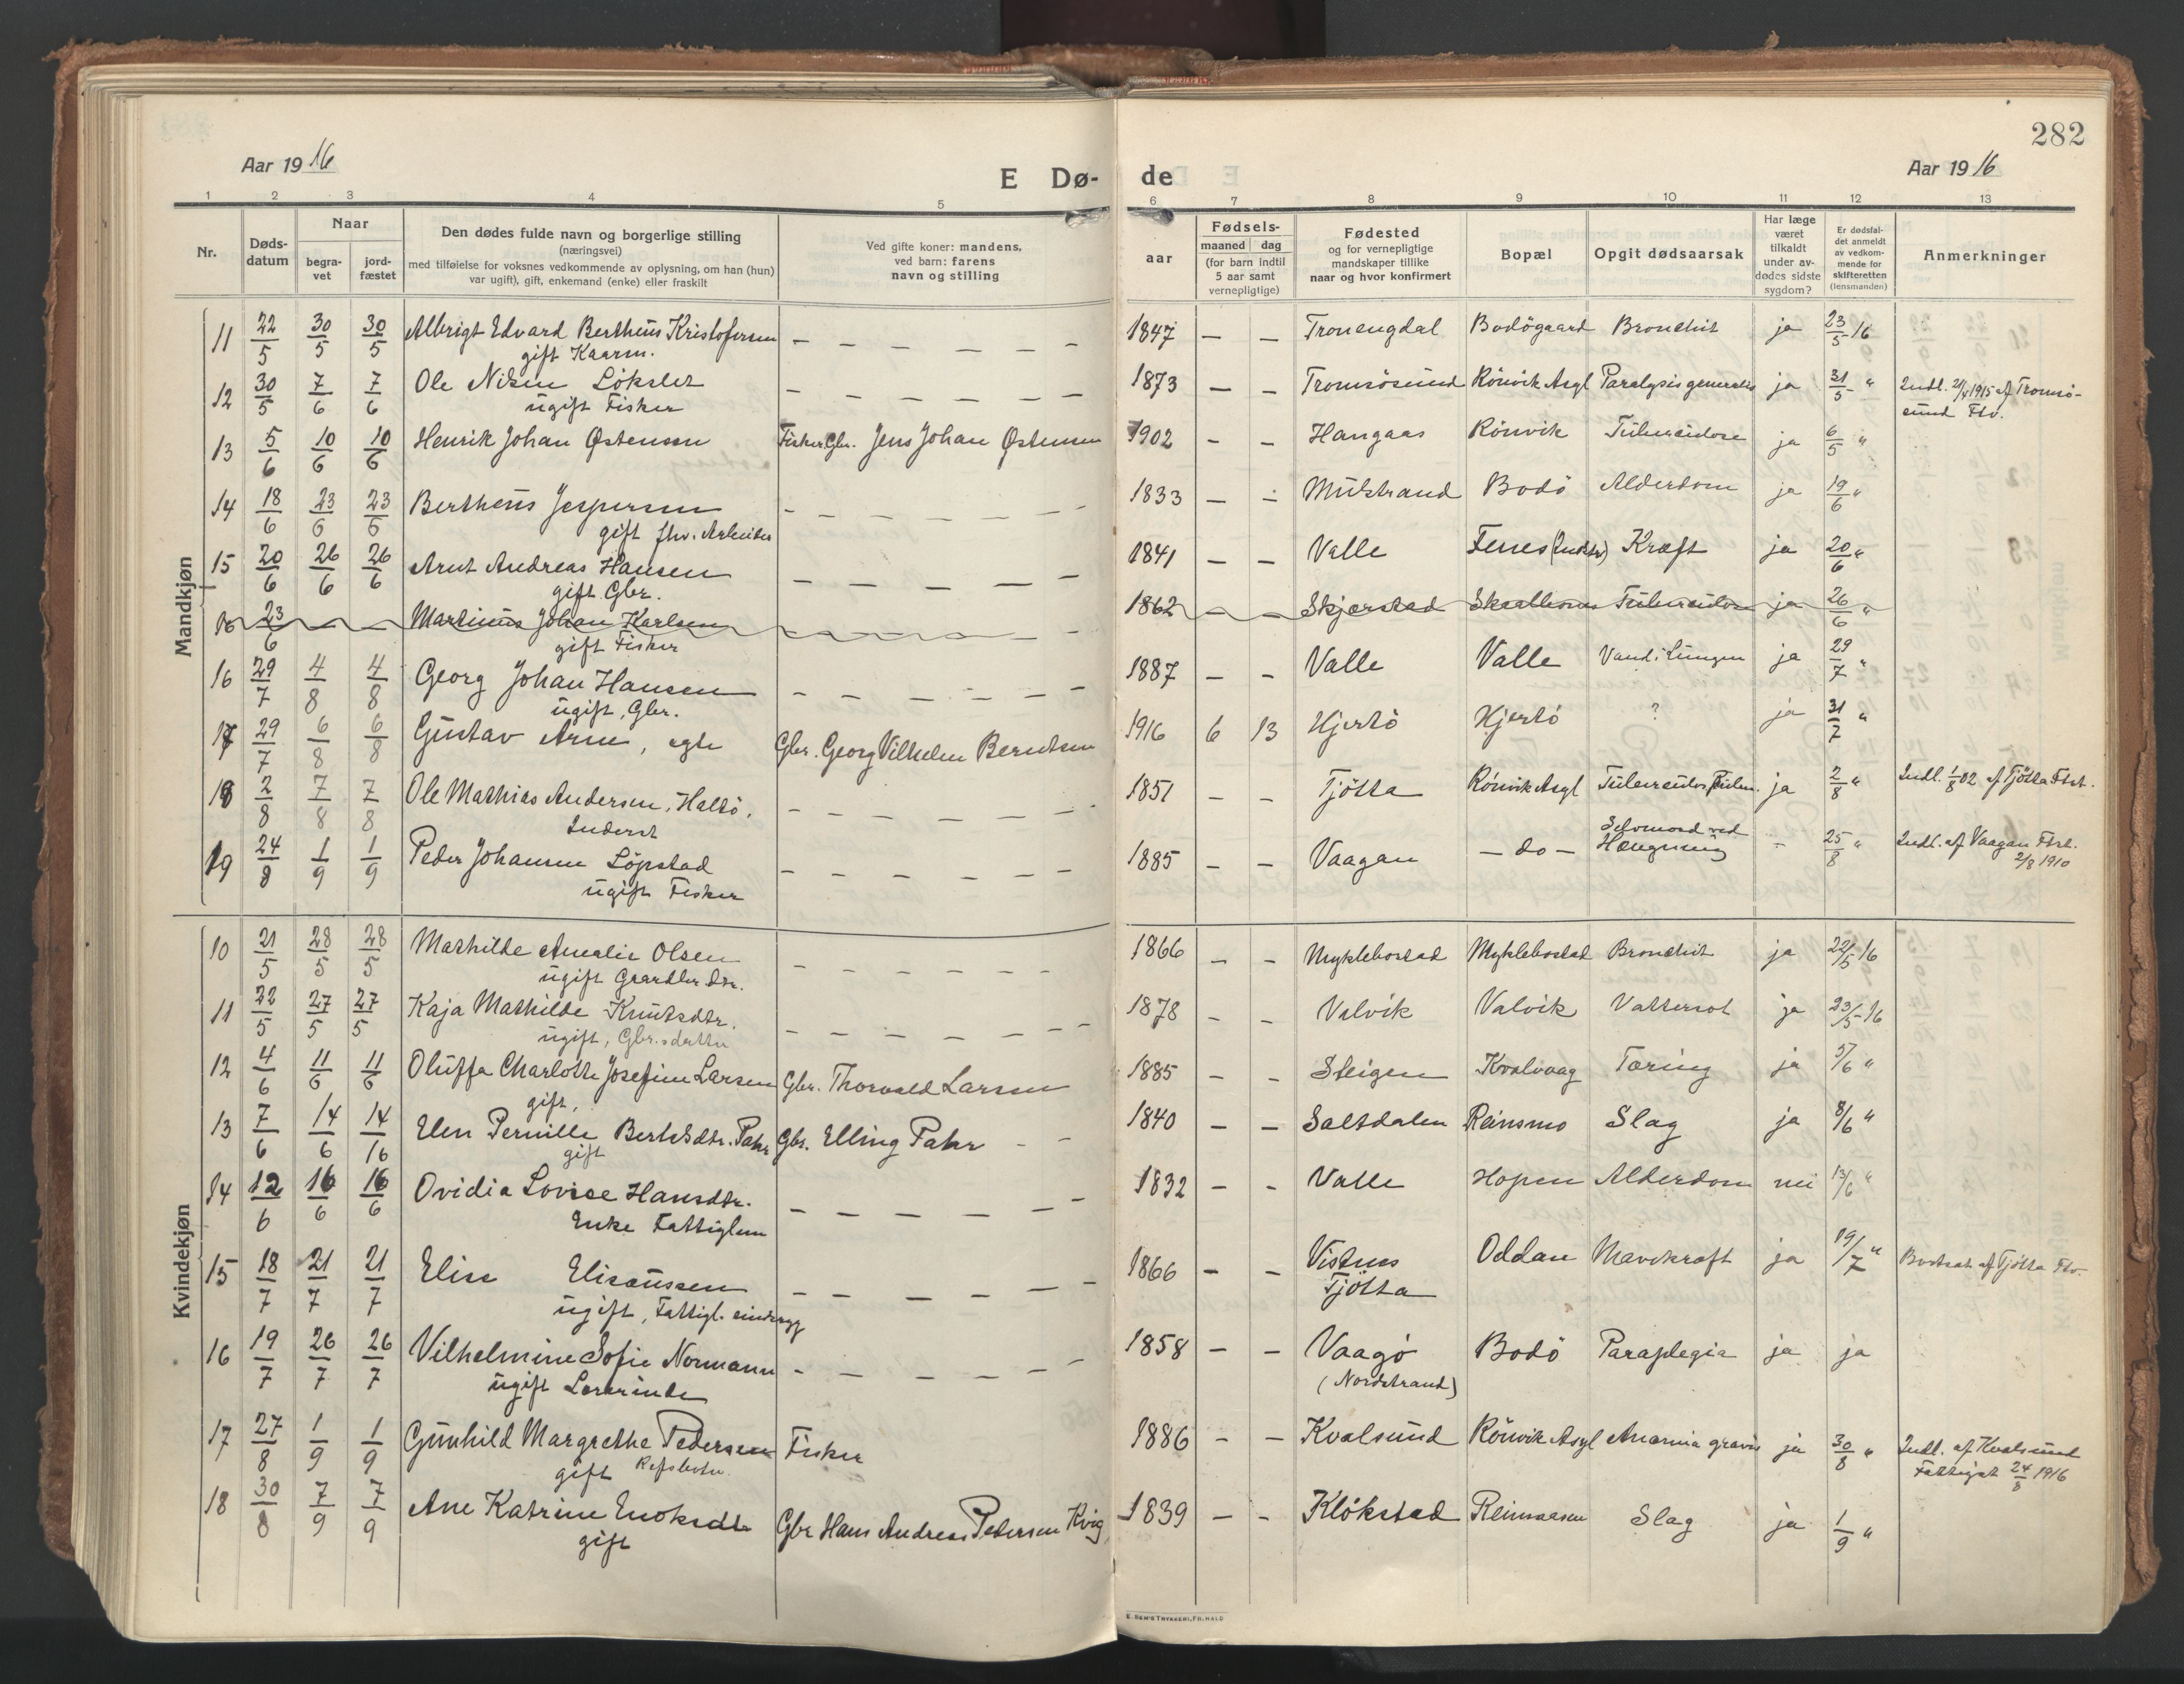 282
Aar 1916
E Dø-
de
Aar 1916
1 2 3 4 5 6 7 8 9 10 11 12 13
Nr.
Døds-
datum
Naar
begra-
vet
jord-
fæstet
Den dødes fulde navn og borgerlige stilling
(næringsvei)
med tilføielse for voksnes vedkommende av oplysning, om han (hun)
var ugift), gift, enkemand (enke) eller fraskilt
Ved gifte koner: mandens,
ved barn: farens
navn og stilling
aar
Fødsels-
maaned dag
(for barn indtil
5 aar samt
vernepligtige)
Fødested
og for vernepligtige
mandskaper tillike
naar og hvor konfirmert
Bopæl
Opgit dødsaarsak
Har læge
været
tilkaldt
under av-
dødes sidste
sygdom?
Er dødsfal-
det anmeldt
av vedkom-
mende for
skifteretten
(lensmanden)
Anmerkninger
Mandkjøn
11 22/5 30/5 30/5 Albrigt Edvard Bertheus Kristofersen – – – – – – 1847 – – Tronengdal Bodögaard Bronchit ja 23/5 16
gift Kaarm.
12 30/5 7/6 7/6 Ole Nilsen Löksler – – – – – – 1873 – – Tromsösund Rönvik Asyl Paralysis generalis ja 31/5 " Indl. 21/4 1915 af Tromsö-
ugift Fisker sund Ftv.
13 5/6 10/6 10/6 Henrik Johan Østensen Fisker. Gbr. Jens Johan Østensen 1902 – – Hangaas Rönvik Tuberculose ja 6/5 "
14 18/6 23/6 23/6 Bertheus Jespersen – – – – – – 1833 – – Mulstrand Bodö Alderdom ja 19/6 "
gift fhv. Arbeider
15 20/6 26/6 26/6 Arnt Andreas Hansen – – – – – 1841 – – Valle Fenes (Indstr) Kræft ja 20/6 "
gift Gbr.
16 23/6 – – Martinus Johan Karlsen – – – – – 1862 – – Skjerstad Tuberculose ja 26/6 "
gift Fisker
16 29/7 4/8 4/8 Georg Johan Hansen – – – – – – 1887 – – Valle Valle Vand i Lungen ja 29/7 "
ugift, Gbr.
17 29/7 6/8 6/8 Gustav Arne, egte Gbr. Georg Vilhelm Berntsen 1916 6 13 Hjertö Hjertö ? ja 31/7 "
18 2/8 7/8 7/8 Ole Mathias Andersen, Haltö. – – – – – – 1851 – – Tjötta Rönvik Asyl Tuberculos Pulm. ja 2/8 " Indl. 1/8 02 af Tjötta Ftst.
Inderst
19 24/8 1/9 1/9 Peder Johansen Löpstad – – – – – – 1885 – – Vaagan – do – Selvmord ved Hængning – 25/8 " Indl. af Vaagan Ftst.
ugift Fisker 2/8 1910
Kvindekjøn
10 21/5 28/5 28/5 Mathilde Amalie Olsen – – – – – – 1866 – – Myklebostad Myklebostad Bronchit ja 22/5 16
ugift Grdbr dtr.
11 22/5 27/5 27/5 Kaja Mathilde Knutsdtr. – – – – – – 1878 – – Valvik Valvik Vattersot ja 23/5 16
ugift, Gbr.sdatter
12 4/6 11/6 11/6 Oluffa Charlotte Josefine Larsen Gbr. Thorvald Larsen 1885 – – Steigen Kvalvaag Tæring ja 5/6 "
gift,
13 7/6 14/6 14/16 Elen Pernille Bertelsdtr. Pahr Gbr. Elling Pahr – – 1840 – – Saltdalen Reinsmo Slag ja 8/6 "
gift
14 12/6 16/6 16/6 Ovidia Lovise Hansdtr. – – – – – – 1832 – – Valle Hopen Alderdom nei 13/6 "
Enke Fattiglem
15 18/7 21/7 21/7 Elise Elisæussen – – – – – – 1866 – – Vistnes Oddan Mavekræft ja 19/7 " Bortsat af Tjötta Ftv.
ugift, Fattigl. Tjötta
16 19/7 26/7 26/7 Vilhelmine Sofie Normann – – – – – – 1858 – – Vaagö Bodö Paraplegia ja ja
ugift Lærerinde (Nordstrand)
17 27/8 1/9 1/9 Gunhild Margrethe Pedersen Fisker 1886 – – Kvalsund Rönvik Asyl Anæmia gravis ja 30/8 " Indl. af Kvalsund
gift Refsbotn. Fattigst 24/8 1916
18 30/8 7/9 7/9 Ane Katrine Enoksdtr Gbr Hans Andreas Pedersen Kvig 1839 – – Klökstad Reinsaasen Slag ja 1/9 "
gift
E. SEM'S TRYKKERI, FR.HALD